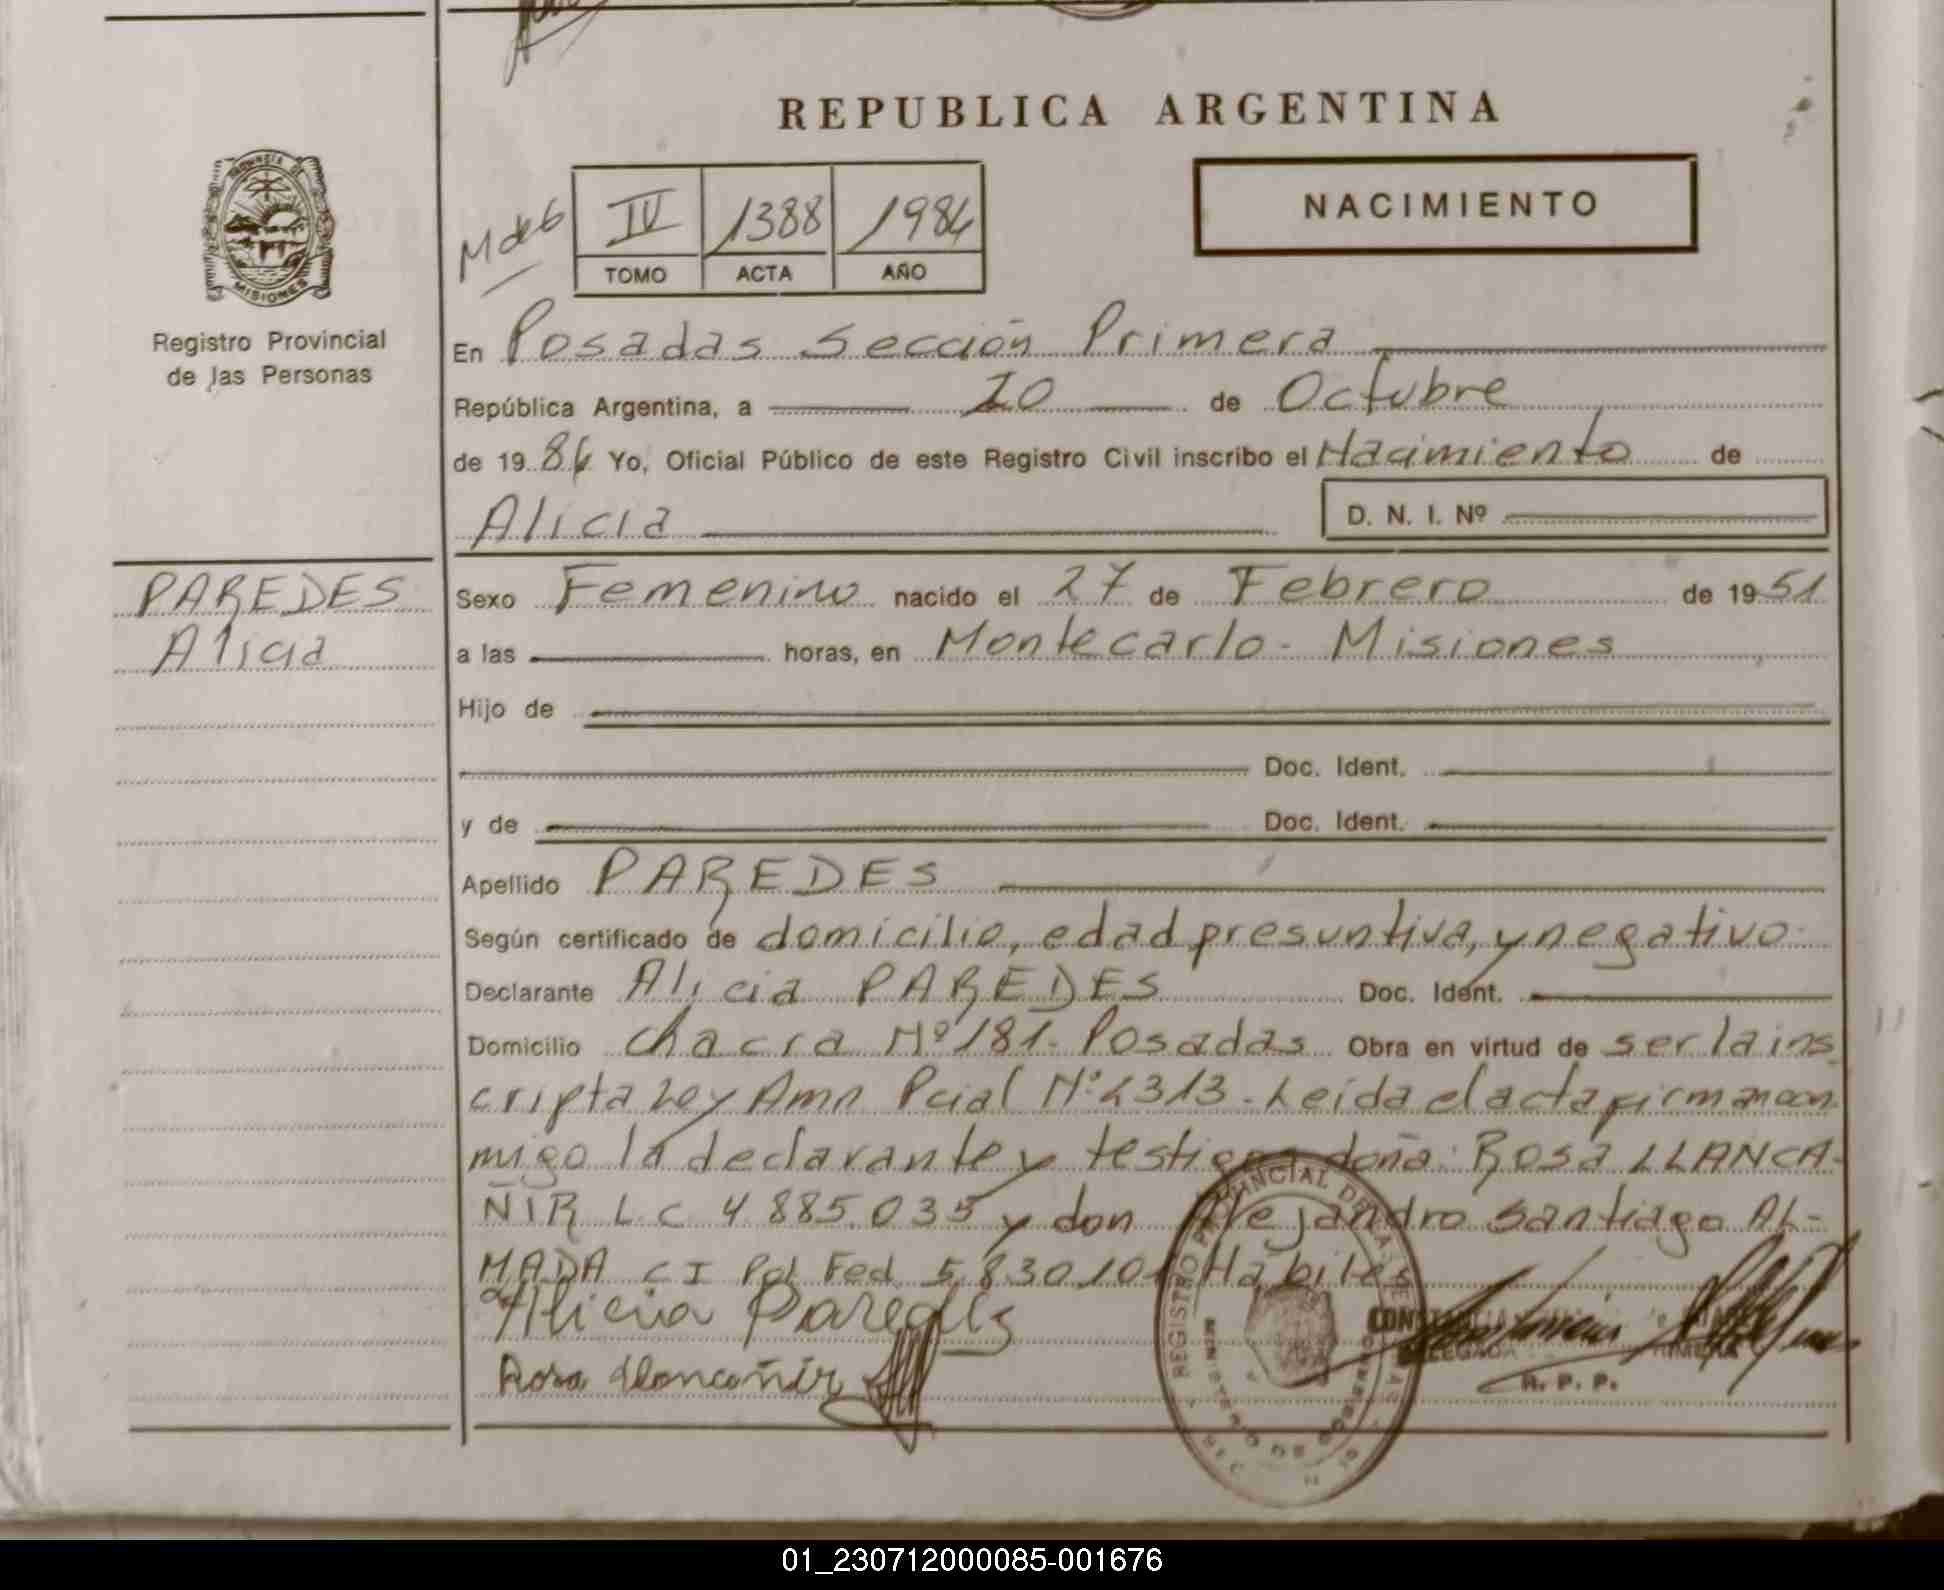 REPUBLICA ARGENTINA
NACIMIENTO
IV 1388 1984
TOMO ACTA AÑO
MISIONES
Registro Provincial
de las Personas
En Posadas Sección Primera
República Argentina, a 10 de Octubre
de 1984 Yo, Oficial Público de este Registro Civil inscribo el Nacimiento de
Alicia D. N. I. Nº
PAREDES
Alicia
Sexo Femenino nacido el 27 de Febrero de 1951
a las horas, en Montecarlo - Misiones
Hijo de
Doc. Ident.
y de Doc. Ident.
Apellido PAREDES
Según certificado de domicilio, edad presuntiva, y negativo.
Declarante Alicia PAREDES Doc. Ident.
Domicilio Chacra Nº 181. Posadas Obra en virtud de ser la ins
cripta Ley Amn Pcial Nº 2313. Leída el acta firman con
migo la declarante y testigos doña: Rosa LLANCA-
ÑIR L C 4.885.035 y don Alejandro Santiago AL-
MADA C I Pol Fed 5.830.101 Hábiles
Alicia Paredes
Rosa Llancañir
REGISTRO PROVINCIAL DE LAS PERSONAS
MINISTERIO DE GOBIERNO
DELEGADA PRIMERA
R. P. P.
01_230712000085-001676